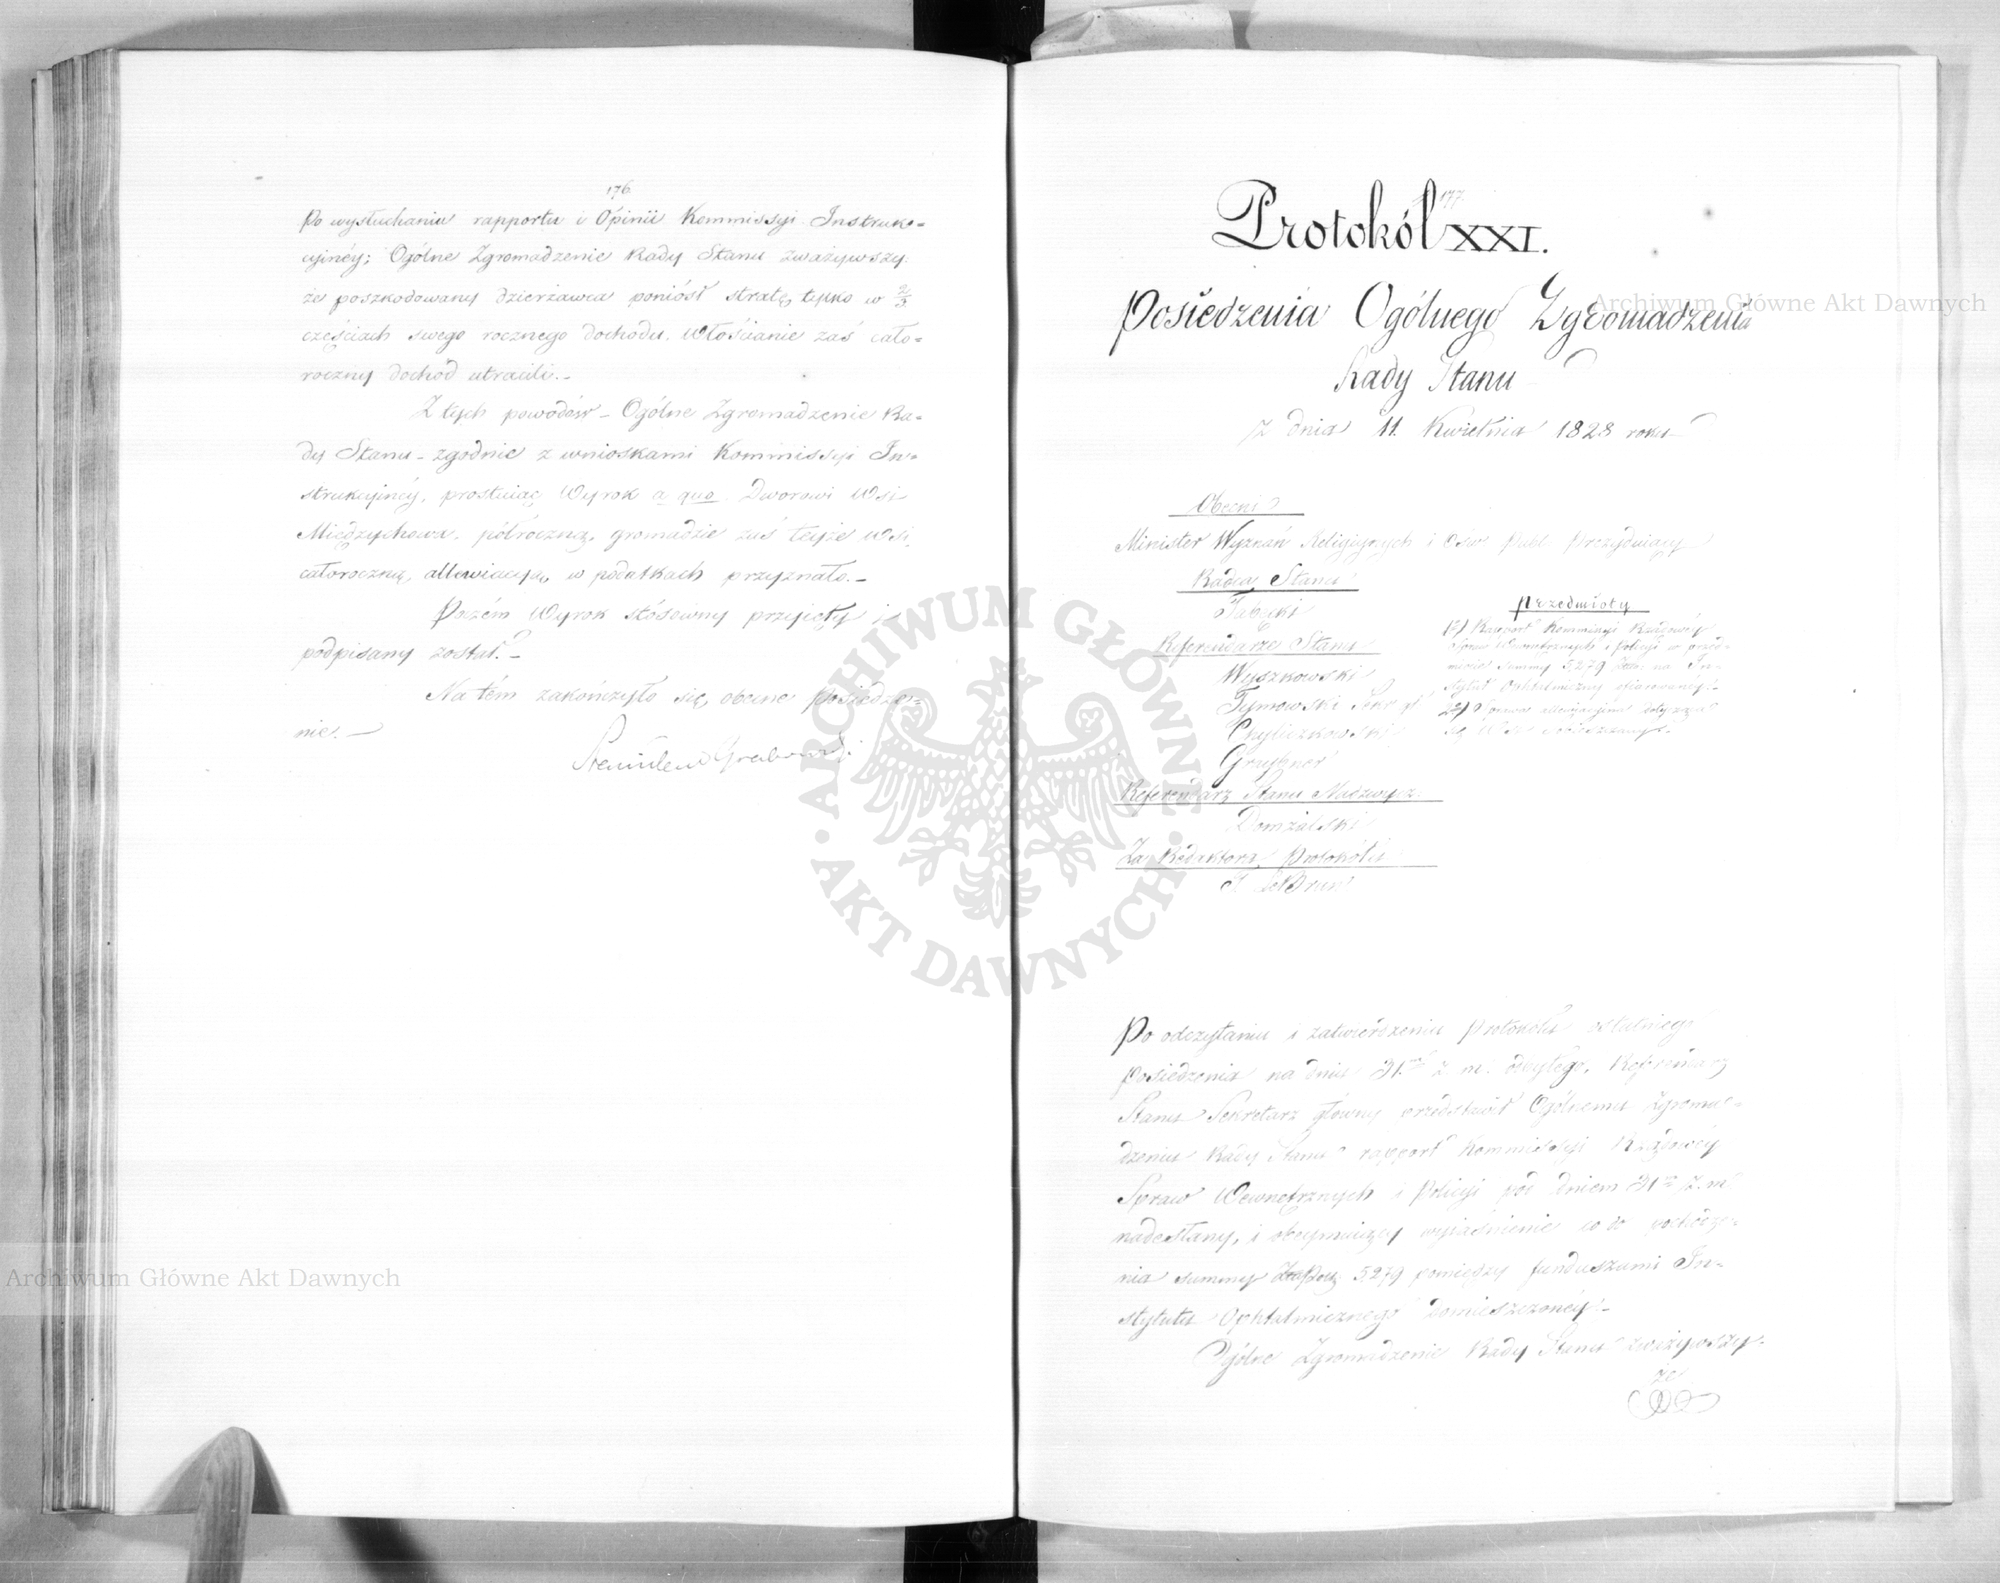 176.
Po wysłuchaniu rapportu i Opinii Kommissyi Instruk-
cyinéy; Ogólne Zgromadzenie Rady Stanu zważywszy:
że poszkodowany dzierżawca poniósł stratę tylko w 2/3
częściach swego rocznego dochodu, Włościanie zaś cało-
roczny dochód utracili.-
Z tych powodów - Ogólne Zgromadzenie Ra-
dy Stanu - zgodnie z wnioskami Kommissyi In-
strukcyinéy, prostuiąc Wyrok a quo Dworowi Wsi
Międzychowa, półroczną, gromadzie zaś teyże wsi,
całoroczną, allewiacyią w podatkach przyznało.-
Poczém Wyrok stósowny przyięty i
podpisany został.-
Na tém zakończyło się obecne posiedze-
nie.-
Stanisław Grabowski
177.
Protokół XXI.
Posiedzenia Ogólnego Zgromadzenia
Rady Stanu
Z dnia 11. Kwietnia 1828 roku
Obecni
Minister Wyznań Religijnych i Ośw. Publ. Prezyduiący
Radca Stanu
Tabęcki
Referendarze Stanu
Wyszkowski
Tymowski Sekr. gł.
Chyliczkowski
Grzybner
Referendarz Stanu Nadzwycz.
Domzalski
Za Redaktora Protokółu
A. LeBrun
Przedmioty
1) Rapport Kommissyi Rządowéy
Spraw Wewnętrznych i Policyi w przed-
miocie summy 5,279 na In-
stytut Ophtalmiczny ofiarowanéy.-
2) Sprawa allewiacyina dotycząca
się Wsi
Po odczytaniu i zatwierdzeniu Protokółu ostatniego
Posiedzenia na dniu 31. z. m. odbytego, Referendarz
Stanu Sekretarz główny przedstawił Ogólnemu Zgroma-
dzeniu Rady Stanu rapport Kommissyi Rządowéy
Spraw Wewnętrznych i Policyi pod dniem 31 z. m.
nadesłany, i obeymuiący wyiaśnienie co do pochodze-
nia summy 5,279 pomiędzy funduszami In-
stytutu Ophtalmicznego zamieszczonéy.-
Ogólne Zgromadzenie Rady Stanu zważywszy.
że
Archiwum Główne Akt Dawnych
Archiwum Główne Akt Dawnych
ARCHIWUM GŁÓWNE
AKT DAWNYCH